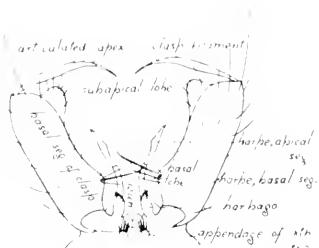 articulated apex
clasp filament
subapical lobe
basal seg of clasp
harpe, apical
seg
basal
lobe
harpe, basal seg.
harbago
appendage of